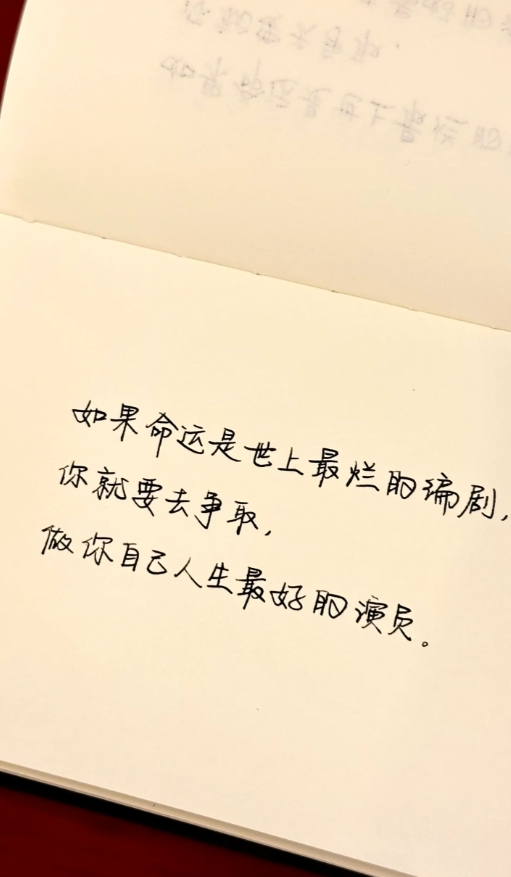 如果命运是世上最烂的编剧，
你就要去争取，
做你自己人生最好的演员。